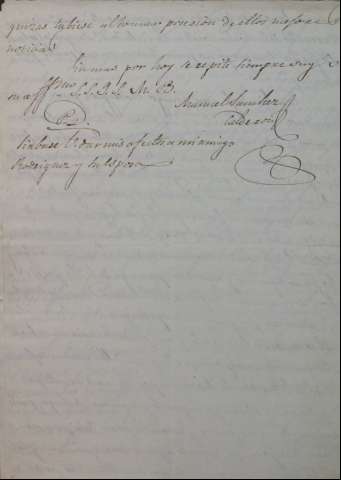 quizas tubiese alguna precision de ellos me fore
noticias
Sin mas por hoy se repite siempre suyo
su aff.mo S. S. Q. S. M. B.
Manuel Sanchez
Calderon
P. D.
Sirbase V. dar mis afectos a mi amigo
Rodriguez y su esposa